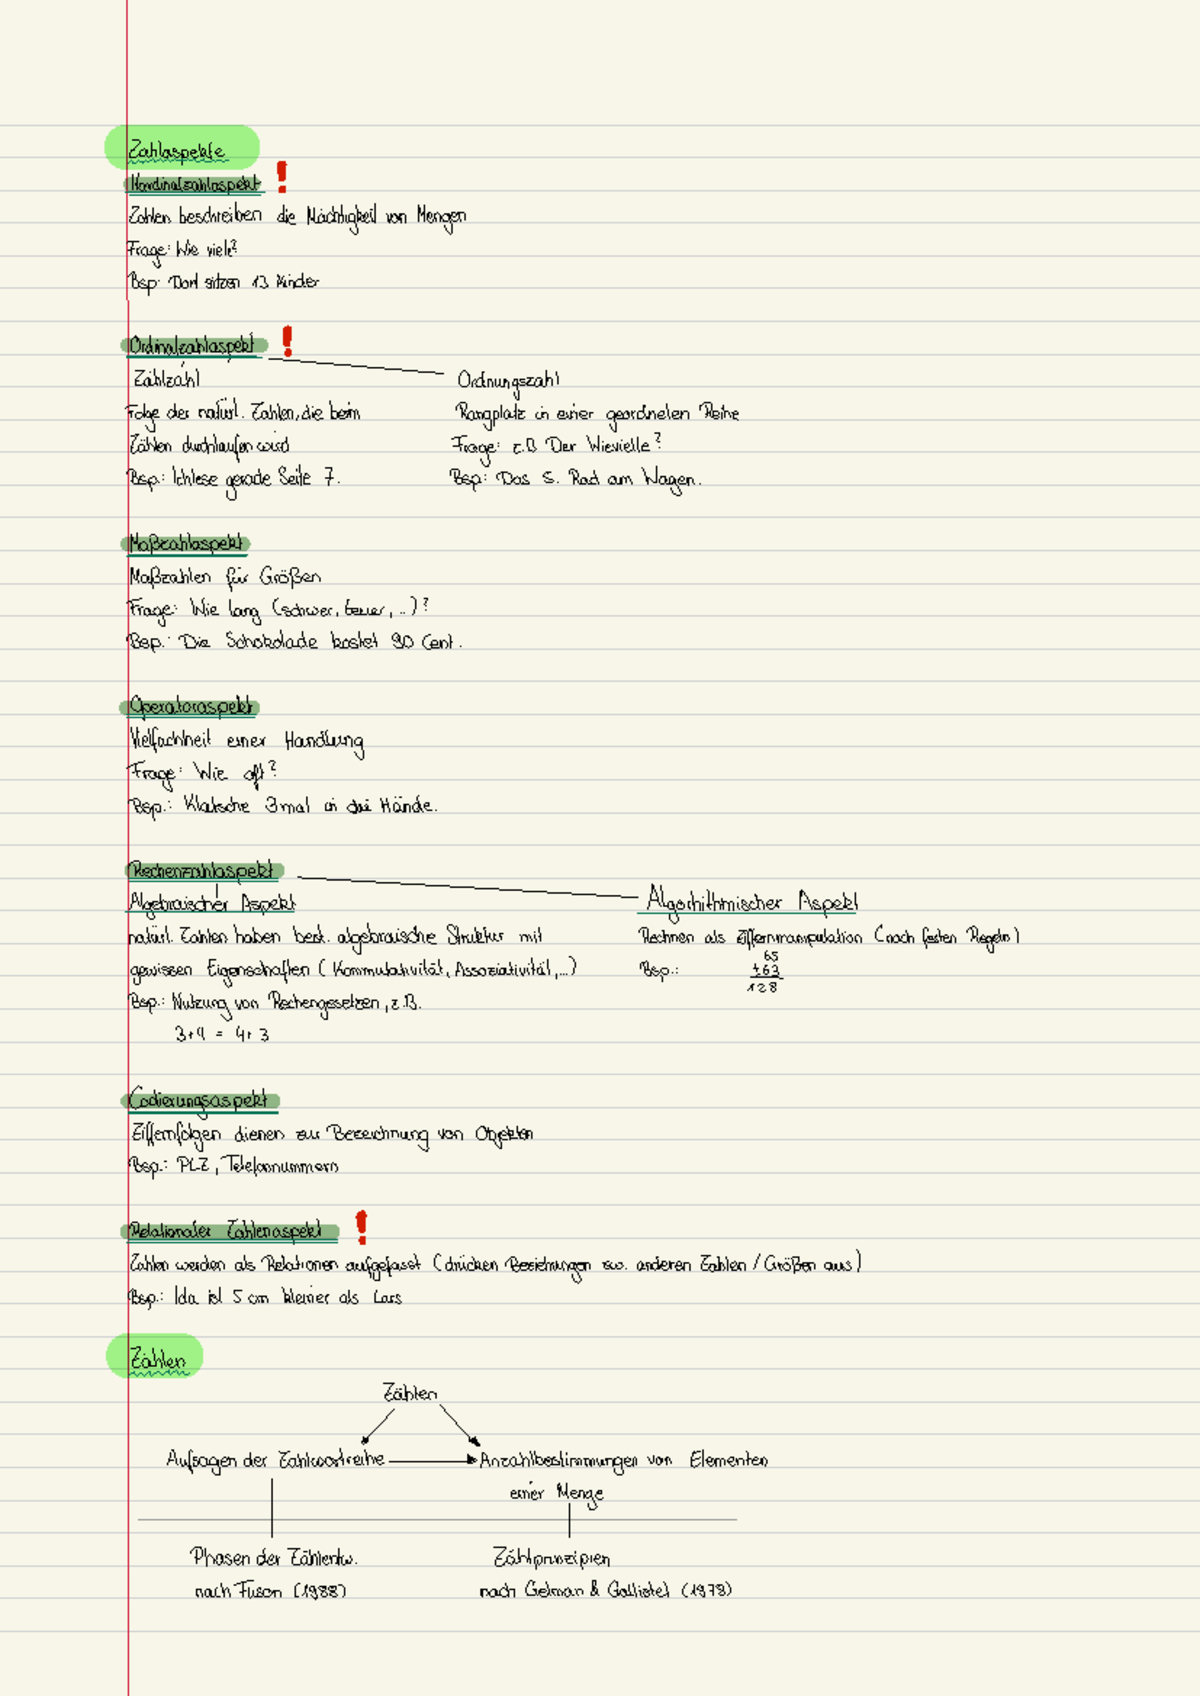 Zahlaspekte
Kardinalzahlaspekt !
Zahlen beschreiben die Mächtigkeit von Mengen
Frage: Wie viele?
Bsp: Dort sitzen 13 Kinder
Ordinalzahlaspekt !
Zählzahl
Folge der natürl. Zahlen, die beim
Zählen durchlaufen wird
Bsp.: Ich lese gerade Seite 7.
Ordnungszahl
Rangplatz in einer geordneten Reihe
Frage: z.B Der Wievielle?
Bsp: Das 5. Rad am Wagen.
Maßzahlaspekt
Maßzahlen für Größen
Frage: Wie lang (schwer, teuer, ..)?
Bsp.: Die Schokolade kostet 90 Cent.
Operatoraspekt
Vielfachheit einer Handlung
Frage: Wie oft?
Bsp.: Klatsche 3mal in die Hände.
Rechenzahlaspekt
Algebraischer Aspekt
natürl. Zahlen haben best. algebraische Struktur mit
gewissen Eigenschaften (Kommutativität, Assoziativität,...)
Bsp.: Nutzung von Rechengesetzen, z.B.
3+4 = 4+3
Algorhithmischer Aspekt
Rechnen als Ziffernmanipulation (nach festen Regeln)
Bsp.:
65
+63
128
Codierungsaspekt
Ziffernfolgen dienen zur Bezeichnung von Objekten
Bsp.: PLZ, Telefonnummern
Relationaler Zahlenaspekt !
Zahlen werden als Relationen aufgefasst (drücken Beziehungen zw. anderen Zahlen / Größen aus)
Bsp.: Ida ist 5 cm kleiner als Lars
Zählen
Zählen
Aufsagen der Zahlwortreihe
Anzahlbestimmungen von Elementen
einer Menge
Phasen der Zählentw.
nach Fuson (1988)
Zählprinzipien
nach Gelman & Gallistel (1978)